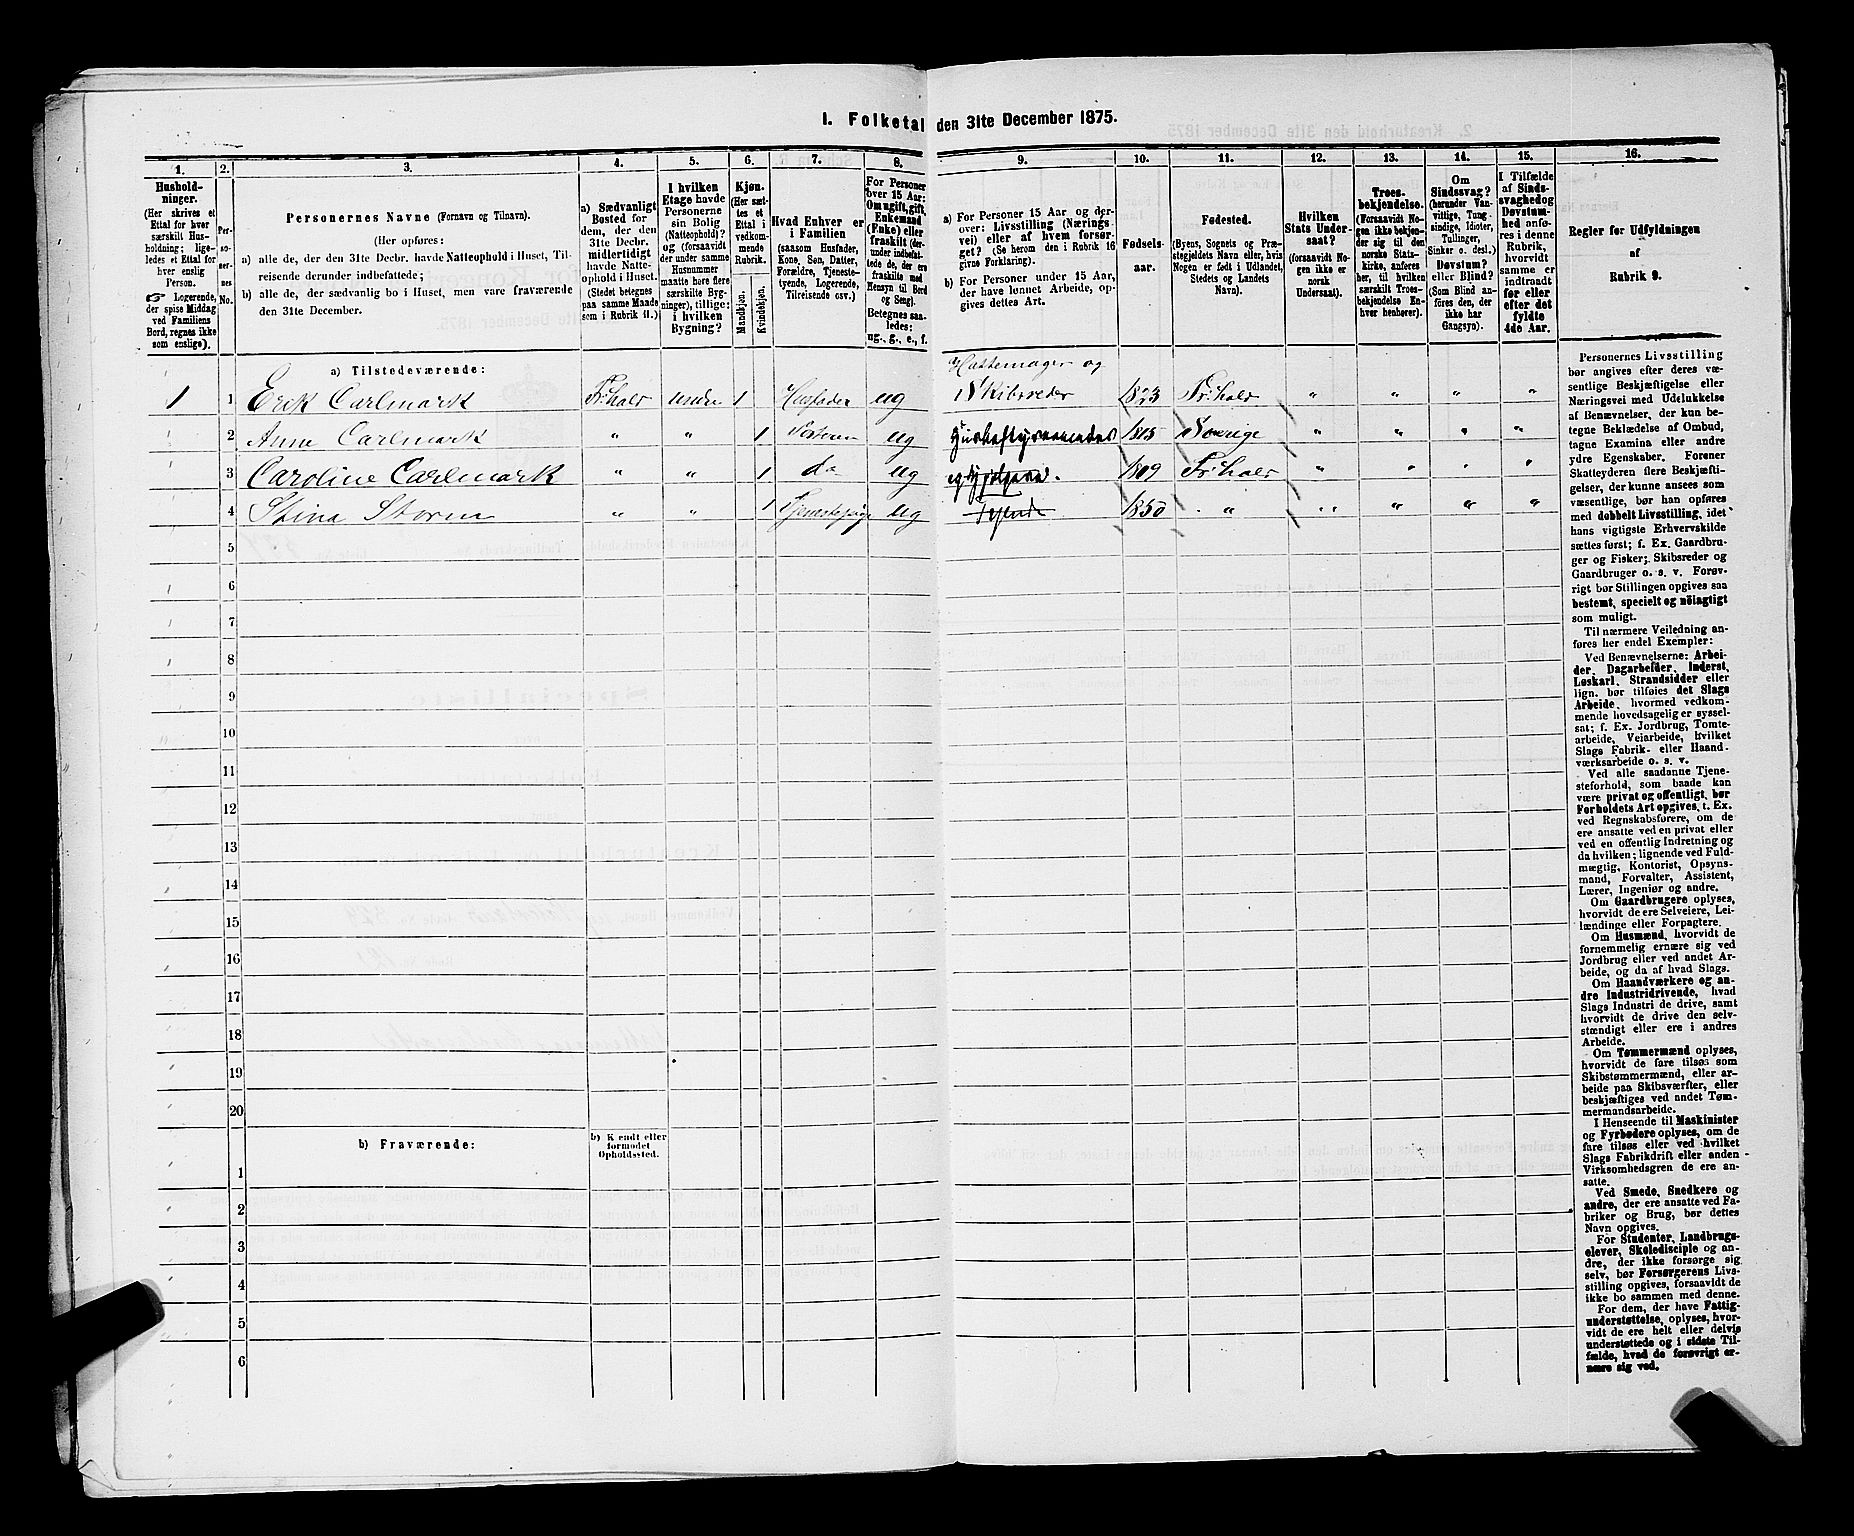 I. Folketal den 31te December 1875.
1.
Hushold-
ninger.
(Her skrives et
Ettal for hver
særskilt Hus-
holdning; lige-
ledes et Ettal for
hver enslig
Person.
☞ Logerende,
der spise Middag
ved Familiens
Bord, regnes ikke
som enslige).
2.
Per-
so-
ner-
nes
No.
3.
Personernes Navne (Fornavn og Tilnavn).
(Her opføres:
a) alle de, der den 31te Decbr. havde Natteophold i Huset, Til-
reisende derunder indbefattede;
b) alle de, der sædvanlig bo i Huset, men vare fraværende
den 31te December.
4.
a) Sædvanligt
Bosted for
dem, der den
31te Decbr.
midlertidigt
havde Natte-
ophold i Huset.
(Stedet betegnes
paa samme Maade
som i Rubrik 11.)
5.
I hvilken
Etage havde
Personerne
sin Bolig
(Natteophold)?
og (forsaavidt
der under samme
Husnummer
maatte høre flere
særskilte Byg-
ninger), tillige:
i hvilken
Bygning?
6.
Kjøn.
(Her sæt-
tes et
Ettal i
vedkom-
mende
Rubrik.
Mandkjøn.
Kvindekjøn.
7.
Hvad Enhver er
i Familien
(saasom Husfader,
Kone, Søn, Datter,
Forældre, Tjeneste-
tyende, Logerende,
Tilreisende osv.)
8.
For Personer
over 15 Aar:
Om ugift, gift,
Enkemand
(Enke) eller
fraskilt (der-
under indbefat-
tede de, der ere
fraskilte med
Hensyn til Bord
og Seng).
Betegnes saa-
ledes:
ug., g., e., f.
9.
a) For Personer 15 Aar og der-
over: Livsstilling (Nærings-
vei) eller af hvem forsør-
get? (Se herom den i Rubrik 16
givne Forklaring).
b) For Personer under 15 Aar,
der have lønnet Arbeide, op-
gives dettes Art.
10.
Fødsels-
aar.
11.
Fødested.
(Byens, Sognets og Præ-
stegjeldets Navn eller, hvis
Nogen er født i Udlandet,
Stedets og Landets
Navn).
12.
Hvilken
Stats Under-
saat?
(forsaavidt No-
gen ikke er
norsk
Undersaat).
13.
Troes-
bekjendelse.
(Forsaavidt No-
gen ikke bekjen-
der sig til den
norske Stats-
kirke, anføres
her, til hvilken
særskilt Troes-
bekjendelse En-
hver henhører).
14.
Om
Sindssvag?
(herunder Van-
vittige, Tung-
sindige, Idioter,
Tullinger,
Sinker o. desl.)
Døvstum?
eller Blind?
(Som Blind an-
føres den, der
ikke har
Gangsyn).
15.
I Tilfælde
af Sinds-
svaghed og
Døvstum-
hed anfø-
res i denne
Rubrik,
hvorvidt
samme er
indtraadt
før eller
efter det
fyldte
4de Aar.
16.
Regler for Udfyldningen
af
Rubrik 9.
a) Tilstedeværende:
Hattemager og
1 1 Erik Carlmark Fr:hald undre 1 Husfader ug Skibsreder 1823 Fr:hald " " " "
2 Anne Carlmark " " 1 Søsteren ug 1815 Sverige " " " "
3 Caroline Carlmark " " 1 do ug 1809 Fr:hald " " " "
4 Stina Storm " " 1 Tjenestepige ug Tyende 1850 " " " " "
5
6
7
8
9
10
11
12
13
14
15
16
17
18
19
20
b) Fraværende:
b) Kjendt eller
formodet
Opholdssted.
1
2
3
4
5
6
Personernes Livsstilling
bør angives efter deres væ-
sentlige Beskjæftigelse eller
Næringsvei med Udelukkelse
af Benævnelser, der kun be-
tegne Beklædelse af Ombud,
tagne Examina eller andre
ydre Egenskaber. Forener
Skatteyderen flere Beskjæfti-
gelser, der kunne ansees som
væsentlige, bør han opføres
med dobbelt Livsstilling, idet
hans vigtigste Erhvervskilde
sættes først; f. Ex. Gaardbru-
ger og Fisker; Skibsreder og
Gaardbruger o. s. v. Forøv-
rigt bør Stillingen opgives saa
bestemt, specielt og nöiagtigt
som muligt.
Til nærmere Veiledning an-
føres her endel Exempler:
Ved Benævnelserne: Arbei-
der, Dagarbeider, Inderst,
Løskarl, Strandsidder eller
lign. bør tilføies det Slags
Arbeide, hvormed vedkom-
mende hovedsagelig er syssel-
sat; f. Ex. Jordbrug, Tomte-
arbeide, Veiarbeide, hvilket
Slags Fabrik- eller Haand-
værksarbeide o. s. v.
Ved alle saadanne Tjene-
steforhold, som baade kan
være privat og offentligt, bør
Forholdets Art opgives, t. Ex.
ved Regnskabsførere, om de
ere ansatte ved en privat eller
ved en offentlig Indretning og
da hvilken; lignende ved Fuld-
mægtig, Kontorist, Opsyns-
mand, Forvalter, Assistent,
Lærer, Ingeniør og andre.
Om Gaardbrugere oplyses,
hvorvidt de ere Selveiere, Lei-
lændinge eller Forpagtere.
Om Husmænd, hvorvidt de
fornemmelig ernære sig ved
Jordbrug eller ved andet Ar-
beide, og da af hvad Slags.
Om Haandværkere og an-
dre Industridrivende, hvad
Slags Industri de drive, samt
hvorvidt de drive den selv-
stændigt eller ere i andres
Arbeide.
Om Tømmermænd oplyses,
hvorvidt de fare tilsøs som
Skibstømmermænd, eller ar-
beide paa Skibsværfter, eller
beskjæftiges ved andet Tøm-
mermandsarbeide.
I Henseende til Maskinister
og Fyrbødere oplyses, om de
fare tilsøs eller ved hvilket
Slags Fabrikdrift eller anden
Virksomhedsgren de ere an-
satte.
Ved Smede, Snedkere og
andre, der ere ansatte ved Fa-
briker og Brug, bør dettes
Navn opgives.
For Studenter, Landbrugs-
elever, Skoledisciple og an-
dre, der ikke forsørge sig
selv, bør Forsørgerens Livs-
stilling opgives, forsaavidt de
ikke bo sammen med denne.
For dem, der have Fattig-
understøttelse, oplyses, hvor-
vidt de ere helt eller delvis
understøttede og i sidste Til-
fælde, hvad de forøvrigt er-
nære sig ved.